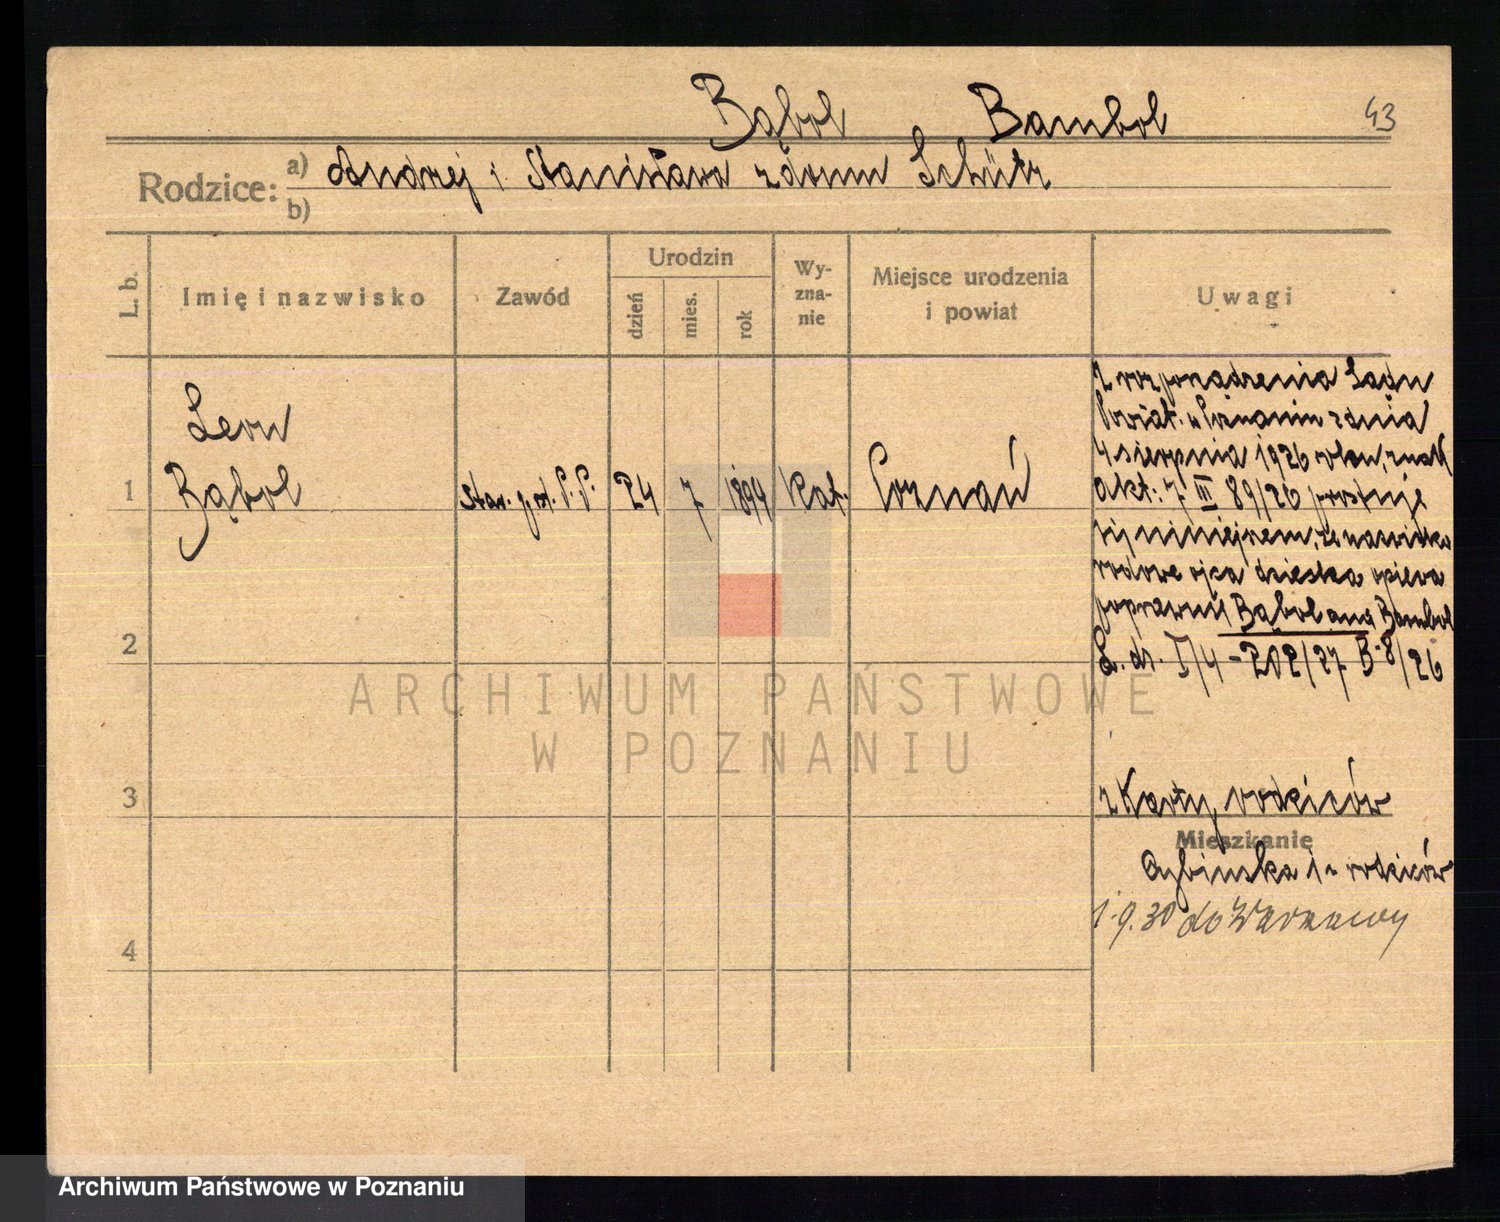 Bąbol Bambol 43
Rodzice: a) Andrzej i Stanisława z domu Schütz
b)
L. b. Imię i nazwisko Zawód Urodzin dzień mies. rok Wy-zna-nie Miejsce urodzenia i powiat Uwagi
Z rozporządzenia Sądu
Powiat. w Poznaniu z dnia
4 sierpnia 1926 roku, znak
akt: 7 III 89/26 prostuje
się niniejszem, że nazwisko
rodowe ojca dziecka opiewa
poprawnie Bąbol a nie Bambol
L. dz. I/4 - 202/27 B-8/26
Leon
1 Bąbol Star. post. P.P. 24 7 1894 kat. Poznań
2
3
4
z karty rodziców
Mieszkanie
Cybińska 1 rodziców
1.9.30 do Warszawy
ARCHIWUM PAŃSTWOWE
W POZNANIU
Archiwum Państwowe w Poznaniu